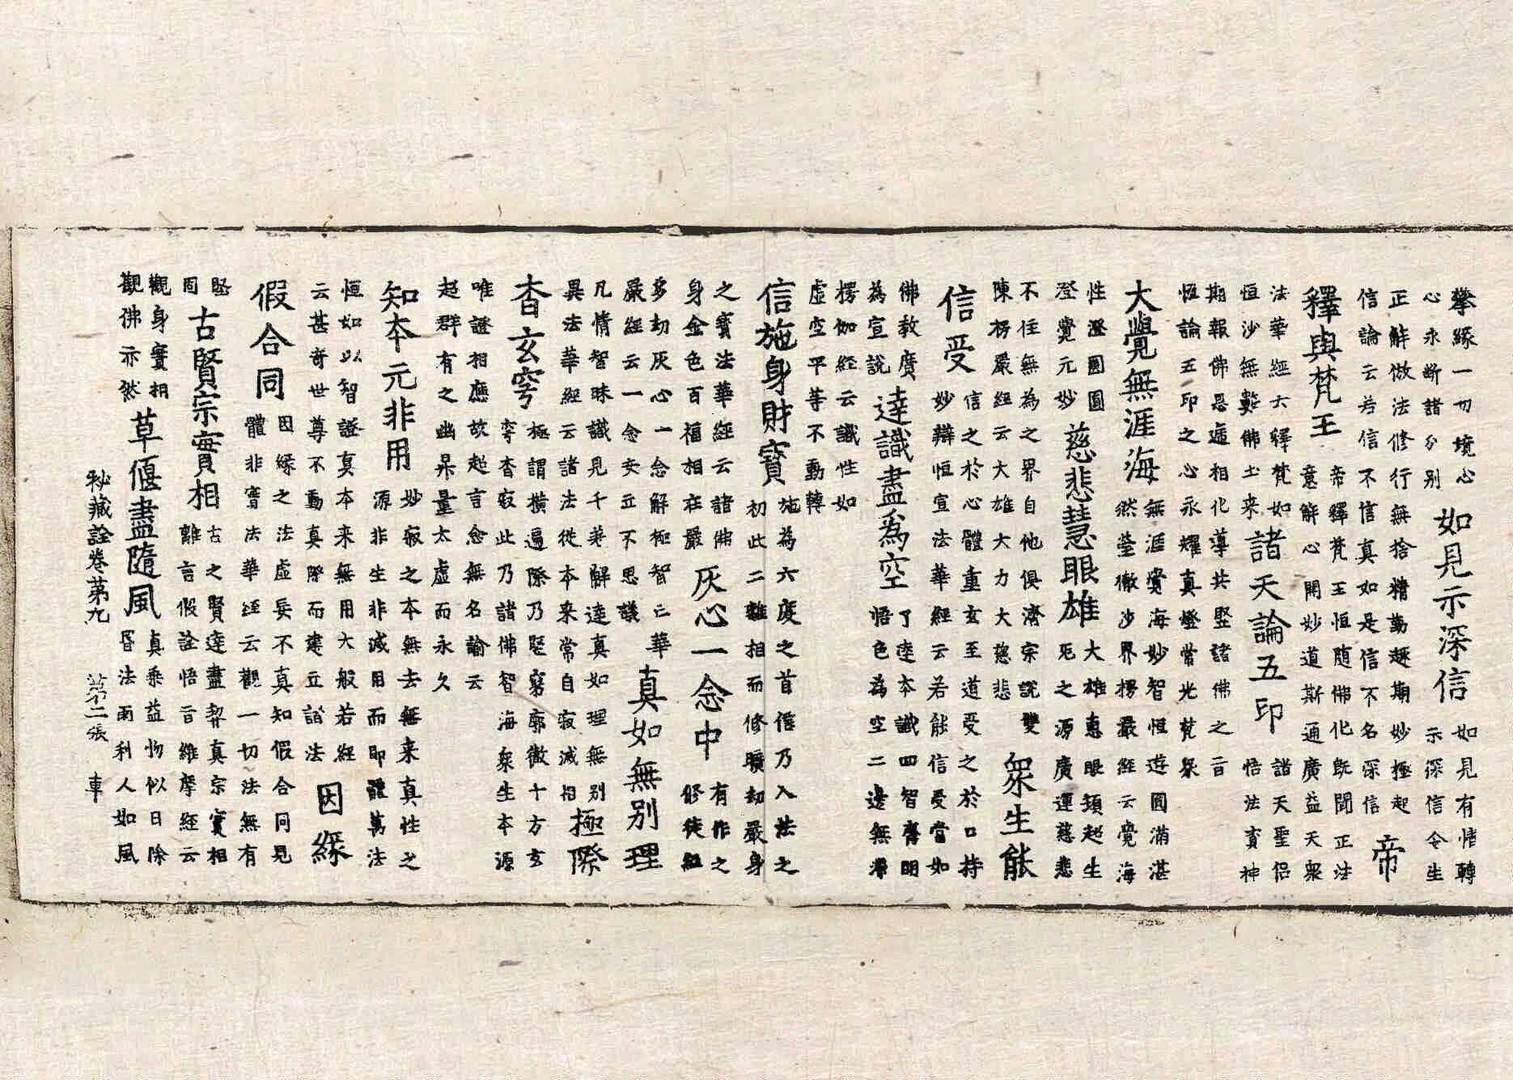 攀緣一切境心
心永斷諸分別
如見示深信
如見有悟轉
示深信令生
正解倣法修行無捨精勤趣期妙極起
信論云若信不信真如是信不名深信
帝
釋與梵王
帝釋梵王恒随佛化既聞正法
意解心開妙道斯通廣益天衆
法華經六釋梵如
恒沙無數佛土来
諸天論五印
諸天聖侶
悟法賓神
期報佛恩遞相化導共堅諸佛之言
恒論五印之心永耀真燈常光梵衆
大覺無涯海
無涯覺海妙智恒遊圓滿湛
然瑩徹沙界楞嚴經云覺海
性澄圓圓
澄覺元妙
慈悲慧眼雄
大雄惠眼頴超生
死之源廣運慈悲
不住無為之界自他俱濟宗說雙
陳楞嚴經云大雄大力大慈悲
衆生能
信受
信之於心體重玄至道受之於口持
妙辯恒宣法華經云若能信受當如
佛教廣
為宣說
達識盡為空
了達本識四智齊明
悟色為空二邊無滯
楞伽經云識性如
虛空平等不動轉
信施身財寶
施為六度之首信乃入法之
初此二離相而修曠劫嚴身
之寶法華經云諸佛
身金色百福相莊嚴
灰心一念中
有作之
修徒經
多劫灰心一念解極智亡華
嚴經云一念安立不思議
真如無別理
凡情智昧識見千差解達真如理無別
異法華經云諸法從本来常自寂滅相
極際
杳玄穹
極謂橫遍際乃竪窮廓徹十方玄
穹杳寂此乃諸佛智海衆生本源
唯證相應故起言念無名論云
超群有之幽昇量太虛而永久
知本元非用
妙寂之本無去無来真性之
源非生非滅用而即體萬法
恒如以智證真本来無用大般若經
云甚奇世尊不動真際而建立諸法
因緣
假合同
因緣之法虛妄不真知假合同見
體非實法華經云觀一切法無有
堅
固
古賢宗實相
古之賢達盡契真宗實相
離言假詮悟旨維摩經云
觀身實相
觀佛亦然
草偃盡隨風
真乘益物似日除
昏法雨利人如風
秘藏詮卷第九 第二張 車